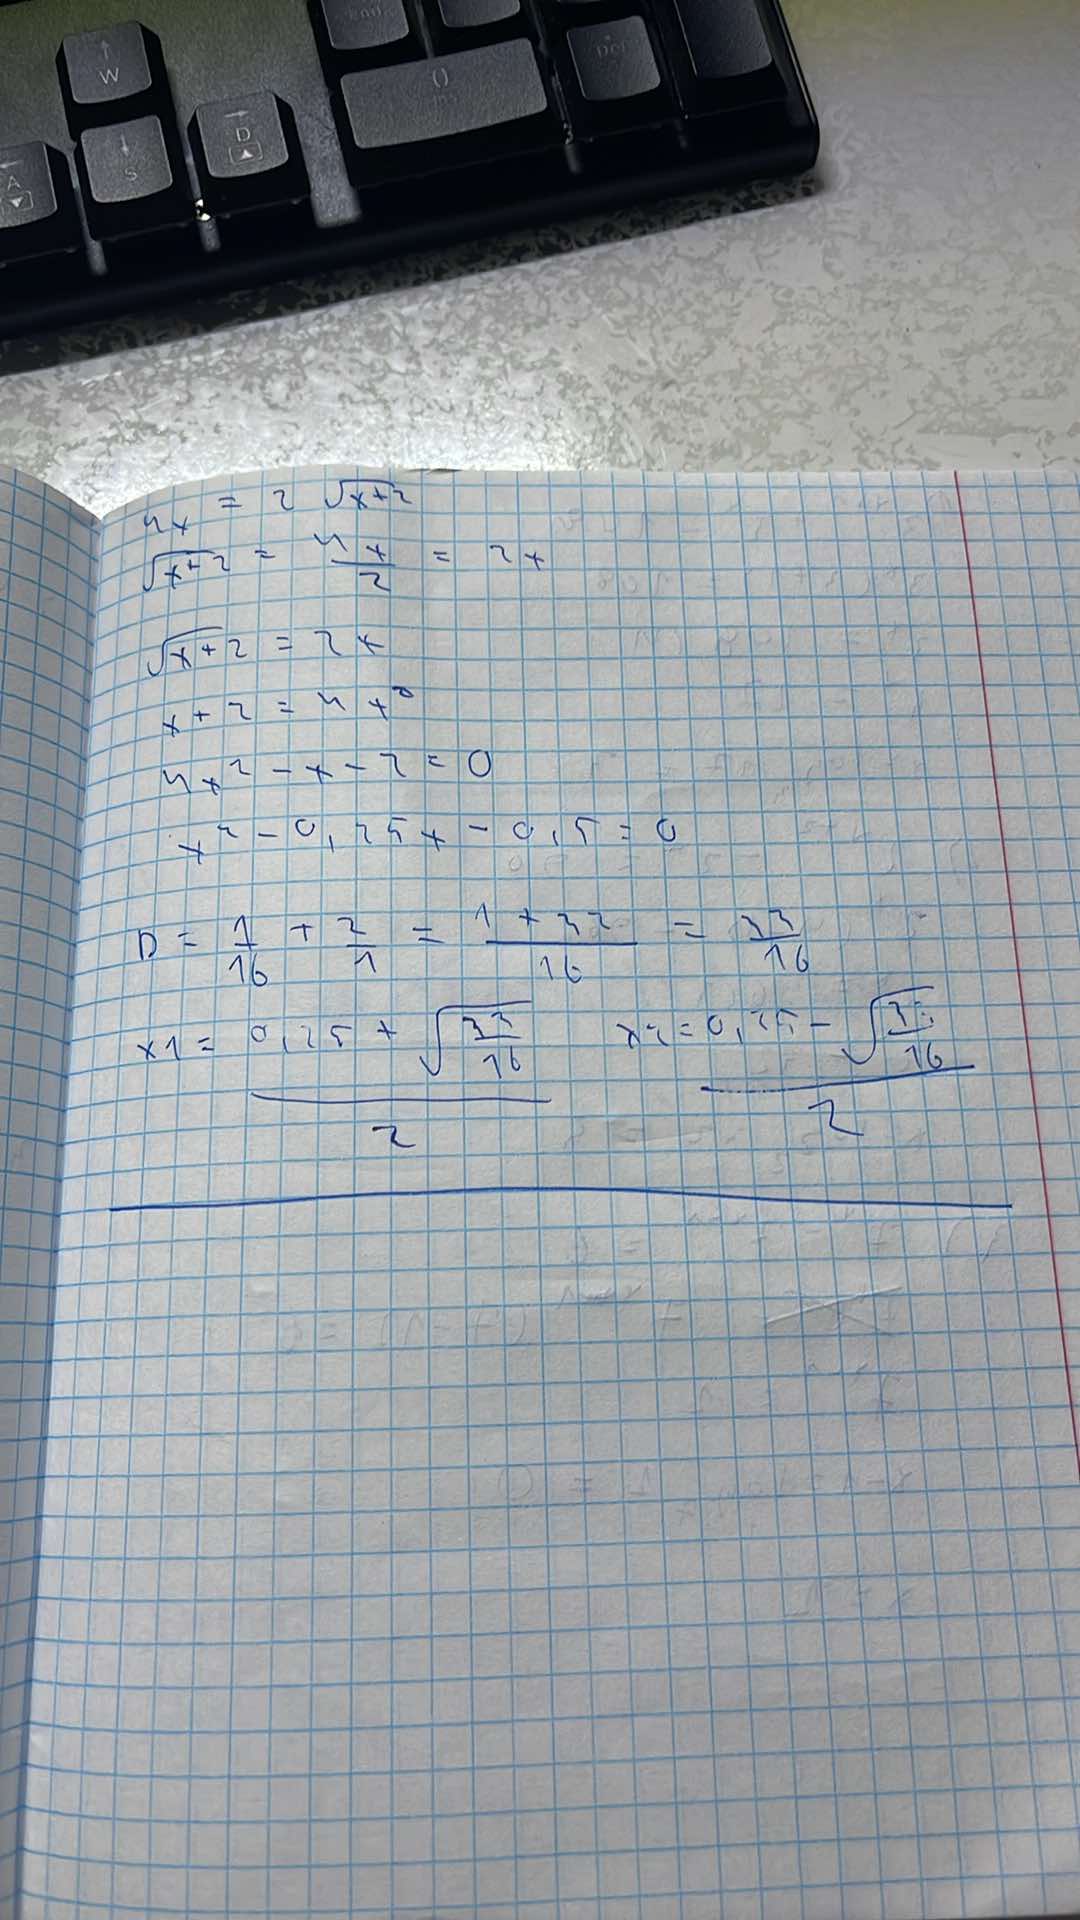 End
W
()
Del
D
S
A
4x = 2 √x+2
√x+2 = 4x/2 = 2x
√x+2 = 2x
x+2 = 4x²
4x² - x - 2 = 0
x² - 0,25x - 0,5 = 0
D = 1/16 + 2/1 = (1+32)/16 = 33/16
x1 = (0,25 + √33/16)/2 x2 = (0,25 - √33/16)/2